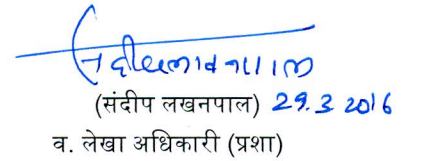 (संदीप लखनपाल) 29.3 2016
व. लेखा अधिकारी (प्रशा)